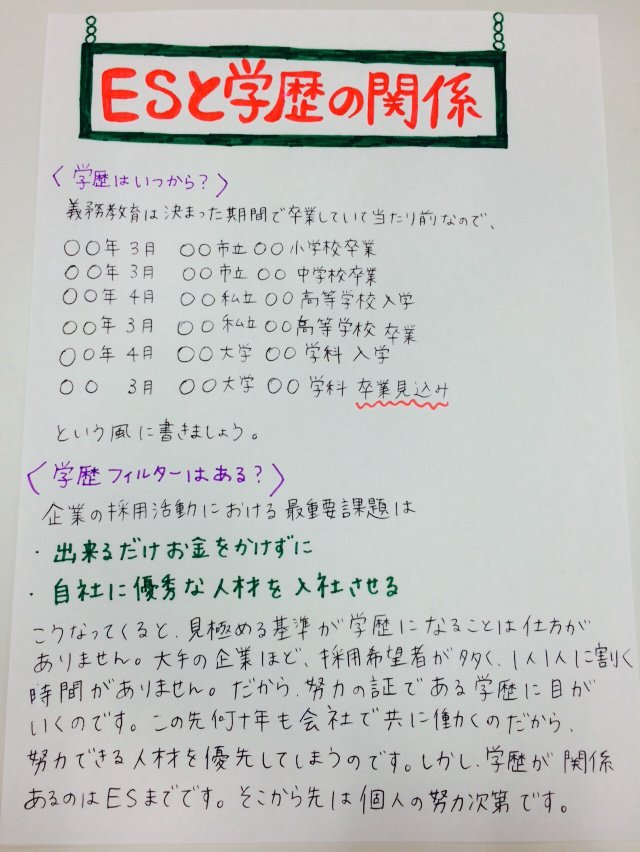 ESと学歴の関係
〈学歴はいつから?〉
義務教育は決まった期間で卒業していて当たり前なので、
○○年 3月 ○○市立 ○○小学校卒業
○○年 3月 ○○市立 ○○ 中学校卒業
○○年 4月 ○○私立 ○○ 高等学校入学
○○年 3月 ○○私立 ○○高等学校 卒業
○○年 4月 ○○大学 ○○ 学科 入学
○○ 3月 ○○大学 ○○ 学科 卒業見込み
という風に書きましょう。
〈学歴フィルターはある?〉
企業の採用活動における最重要課題は
・出来るだけお金をかけずに
・自社に優秀な人材を入社させる
こうなってくると、見極める基準が学歴になることは仕方が
ありません。大手の企業ほど、採用希望者が多く、1人1人に割く
時間がありません。だから、努力の証である学歴に目が
いくのです。この先何十年も会社で共に働くのだから、
努力できる人材を優先してしまうのです。しかし、学歴が関係
あるのはESまでです。そこから先は個人の努力次第です。